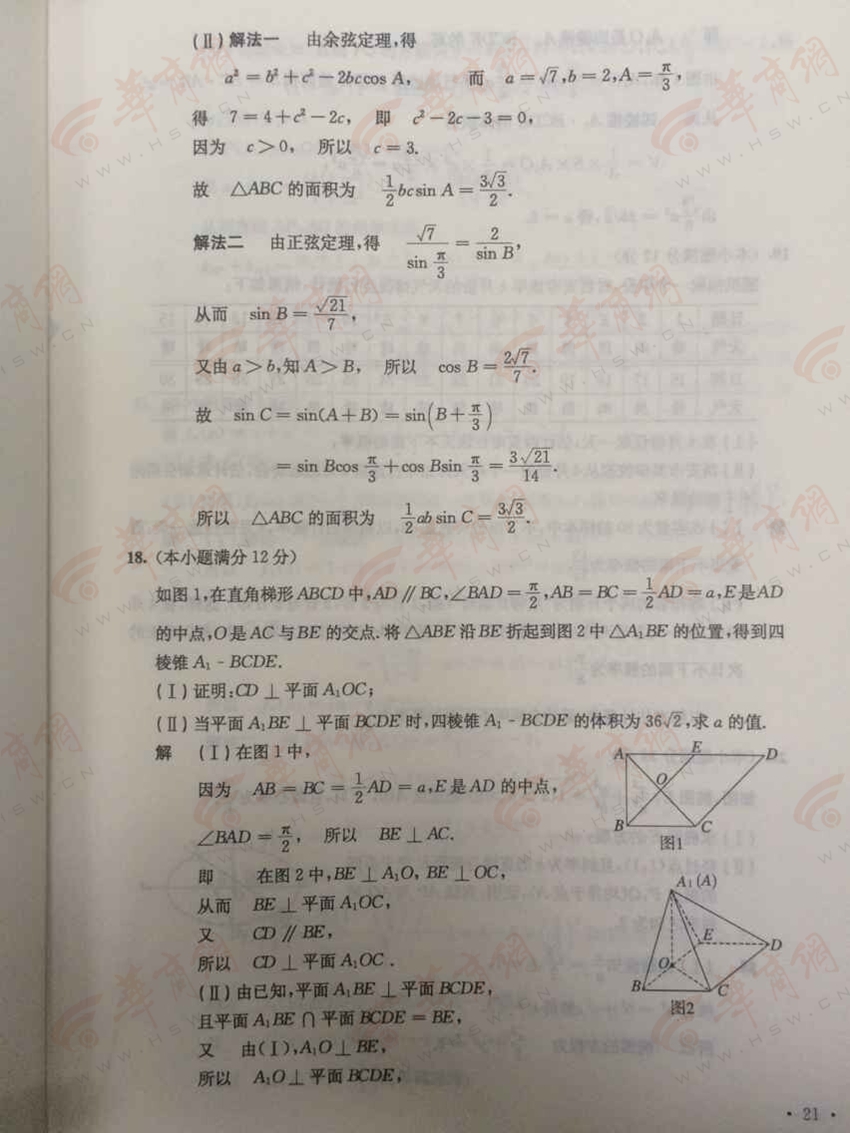 (Ⅱ)解法一 由余弦定理,得
a² = b² + c² - 2bccos A, 而 a = √7, b = 2, A = π/3,
得 7 = 4 + c² - 2c, 即 c² - 2c - 3 = 0,
因为 c > 0, 所以 c = 3.
故 △ABC 的面积为 1/2 bcsin A = 3√3/2.
解法二 由正弦定理,得 √7/sin π/3 = 2/sin B,
从而 sin B = √21/7,
又由 a > b,知 A > B, 所以 cos B = 2√7/7.
故 sin C = sin(A + B) = sin(B + π/3)
= sin Bcos π/3 + cos Bsin π/3 = 3√21/14.
所以 △ABC 的面积为 1/2 ab sin C = 3√3/2.
18. (本小题满分 12 分)
如图 1,在直角梯形 ABCD 中,AD // BC,∠BAD = π/2,AB = BC = 1/2 AD = a,E 是 AD
的中点,O 是 AC 与 BE 的交点.将 △ABE 沿 BE 折起到图 2 中 △A₁BE 的位置,得到四
棱锥 A₁ - BCDE.
(Ⅰ)证明:CD ⊥ 平面 A₁OC;
(Ⅱ)当平面 A₁BE ⊥ 平面 BCDE 时,四棱锥 A₁ - BCDE 的体积为 36√2,求 a 的值.
解 (Ⅰ)在图 1 中,
因为 AB = BC = 1/2 AD = a,E 是 AD 的中点,
∠BAD = π/2, 所以 BE ⊥ AC.
即 在图 2 中,BE ⊥ A₁O, BE ⊥ OC,
从而 BE ⊥ 平面 A₁OC,
又 CD // BE,
所以 CD ⊥ 平面 A₁OC .
(Ⅱ)由已知,平面 A₁BE ⊥ 平面 BCDE,
且平面 A₁BE ∩ 平面 BCDE = BE,
又 由(Ⅰ),A₁O ⊥ BE,
所以 A₁O ⊥ 平面 BCDE,
A E D
O
B C
图1
A₁(A)
E D
O
B C
图2
· 21 ·
华商网
WWW.HSW.CN